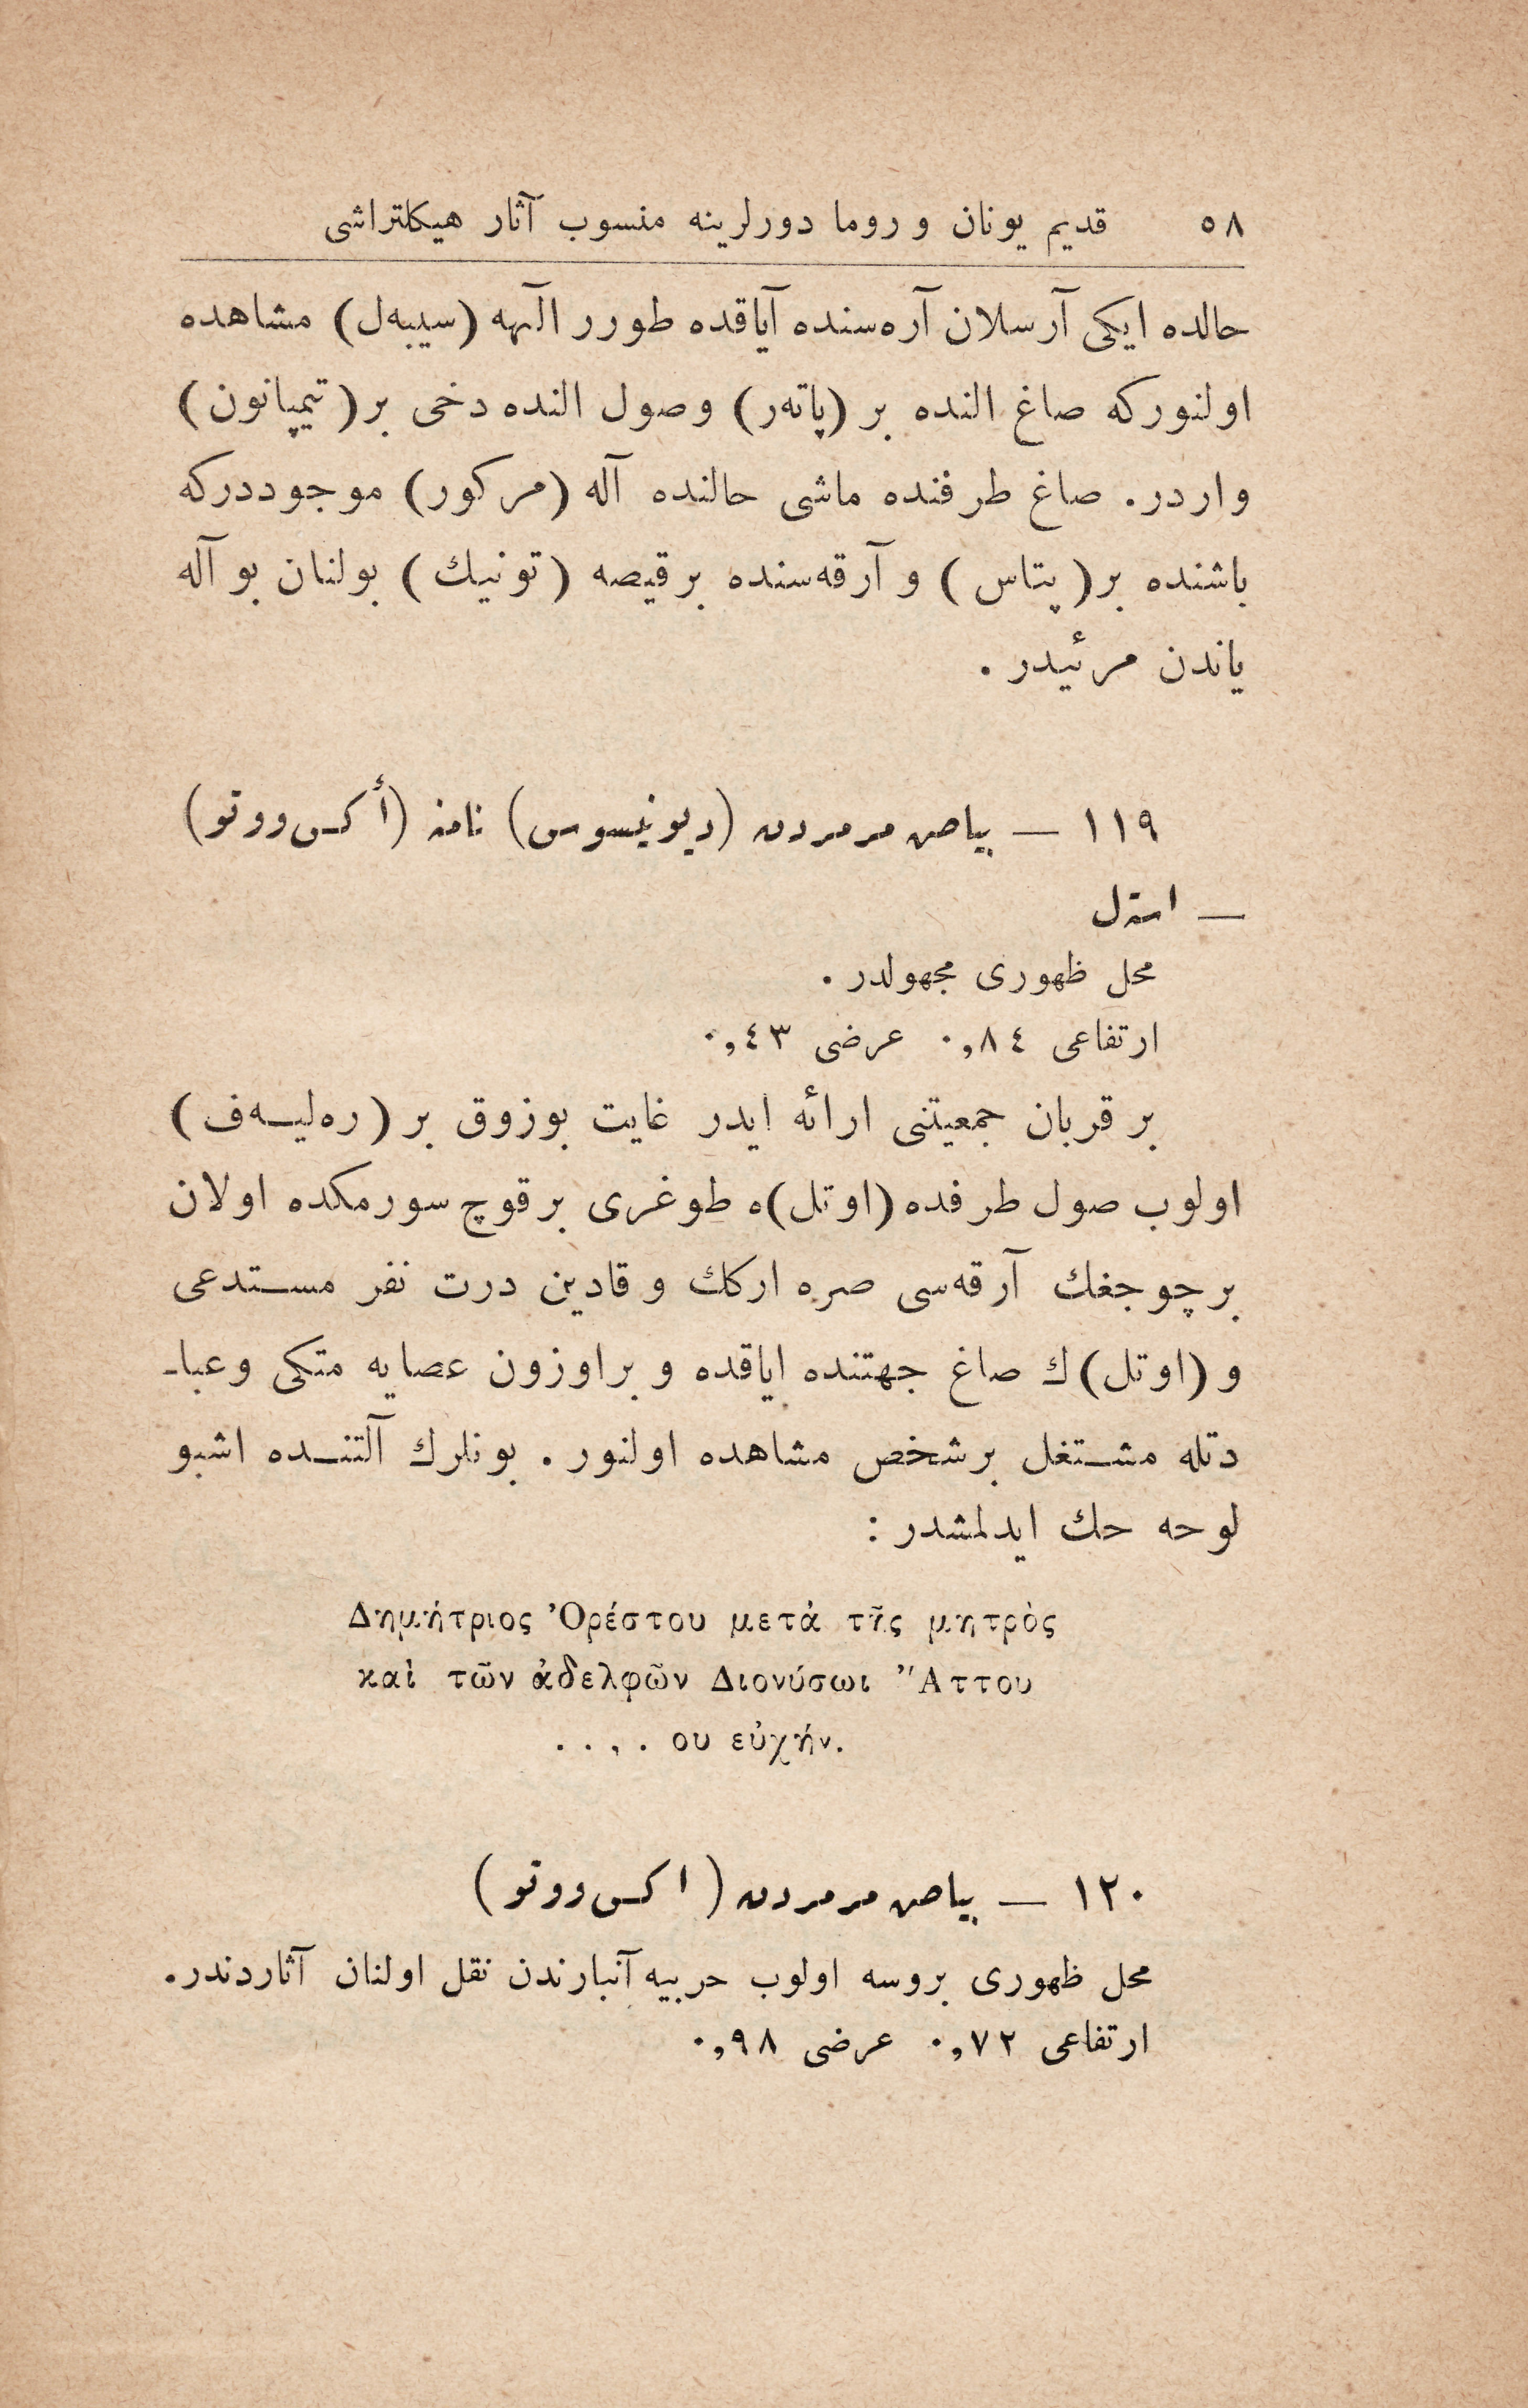 ٥٨ قديم يونان و روما دورلرينه منسوب آثار هيكلتراشى
حالده ايكى آرسلان آره‌سنده آياقده طورر الٓهه (سيبه‌ل) مشاهده
اولنوركه صاغ النده بر (پاته‌ر) وصول النده دخى بر (تيمپانون)
واردر. صاغ طرفنده ماشى حالنده آله (مركور) موجوددركه
باشنده بر (پتاس) و آرقه‌سنده بر قيصه (تونيك) بولنان بو آله
ياندن مرئيدر.
١١٩ — بياض مرمردن (ديونيسوس) نامنه (أكس‌ووتو)
— استل
محل ظهورى مجهولدر.
ارتفاعى ٠,٨٤ عرضى ٠,٤٣
بر قربان جمعيتنى ارائه ايدر غايت بوزوق بر (ره‌ليه‌ف)
اولوب صول طرفده (اوتل)ه طوغرى بر قوچ سورمكده اولان
بر چوجغك آرقه‌سى صره اركك و قادين درت نفر مستدعى
و (اوتل)ك صاغ جهتنده اياقده و بر اوزون عصايه متكى وعبا-
دتله مشتغل بر شخص مشاهده اولنور. بونلرك آلتنده اشبو
لوحه حك ايدلمشدر:
Δημήτριος Ὀρέστου μετὰ τῆς μητρὸς
καὶ τῶν ἀδελφῶν Διονύσωι Ἄττου
. . . . ου εὐχήν.
١٢٠ — بياض مرمردن (اكس‌ووتو)
محل ظهورى بروسه اولوب حربيه آنبارندن نقل اولنان آثاردندر.
ارتفاعى ٠,٧٢ عرضى ٠,٩٨